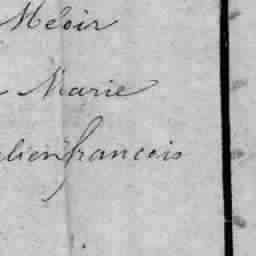 Méloir
Marie
lien francois